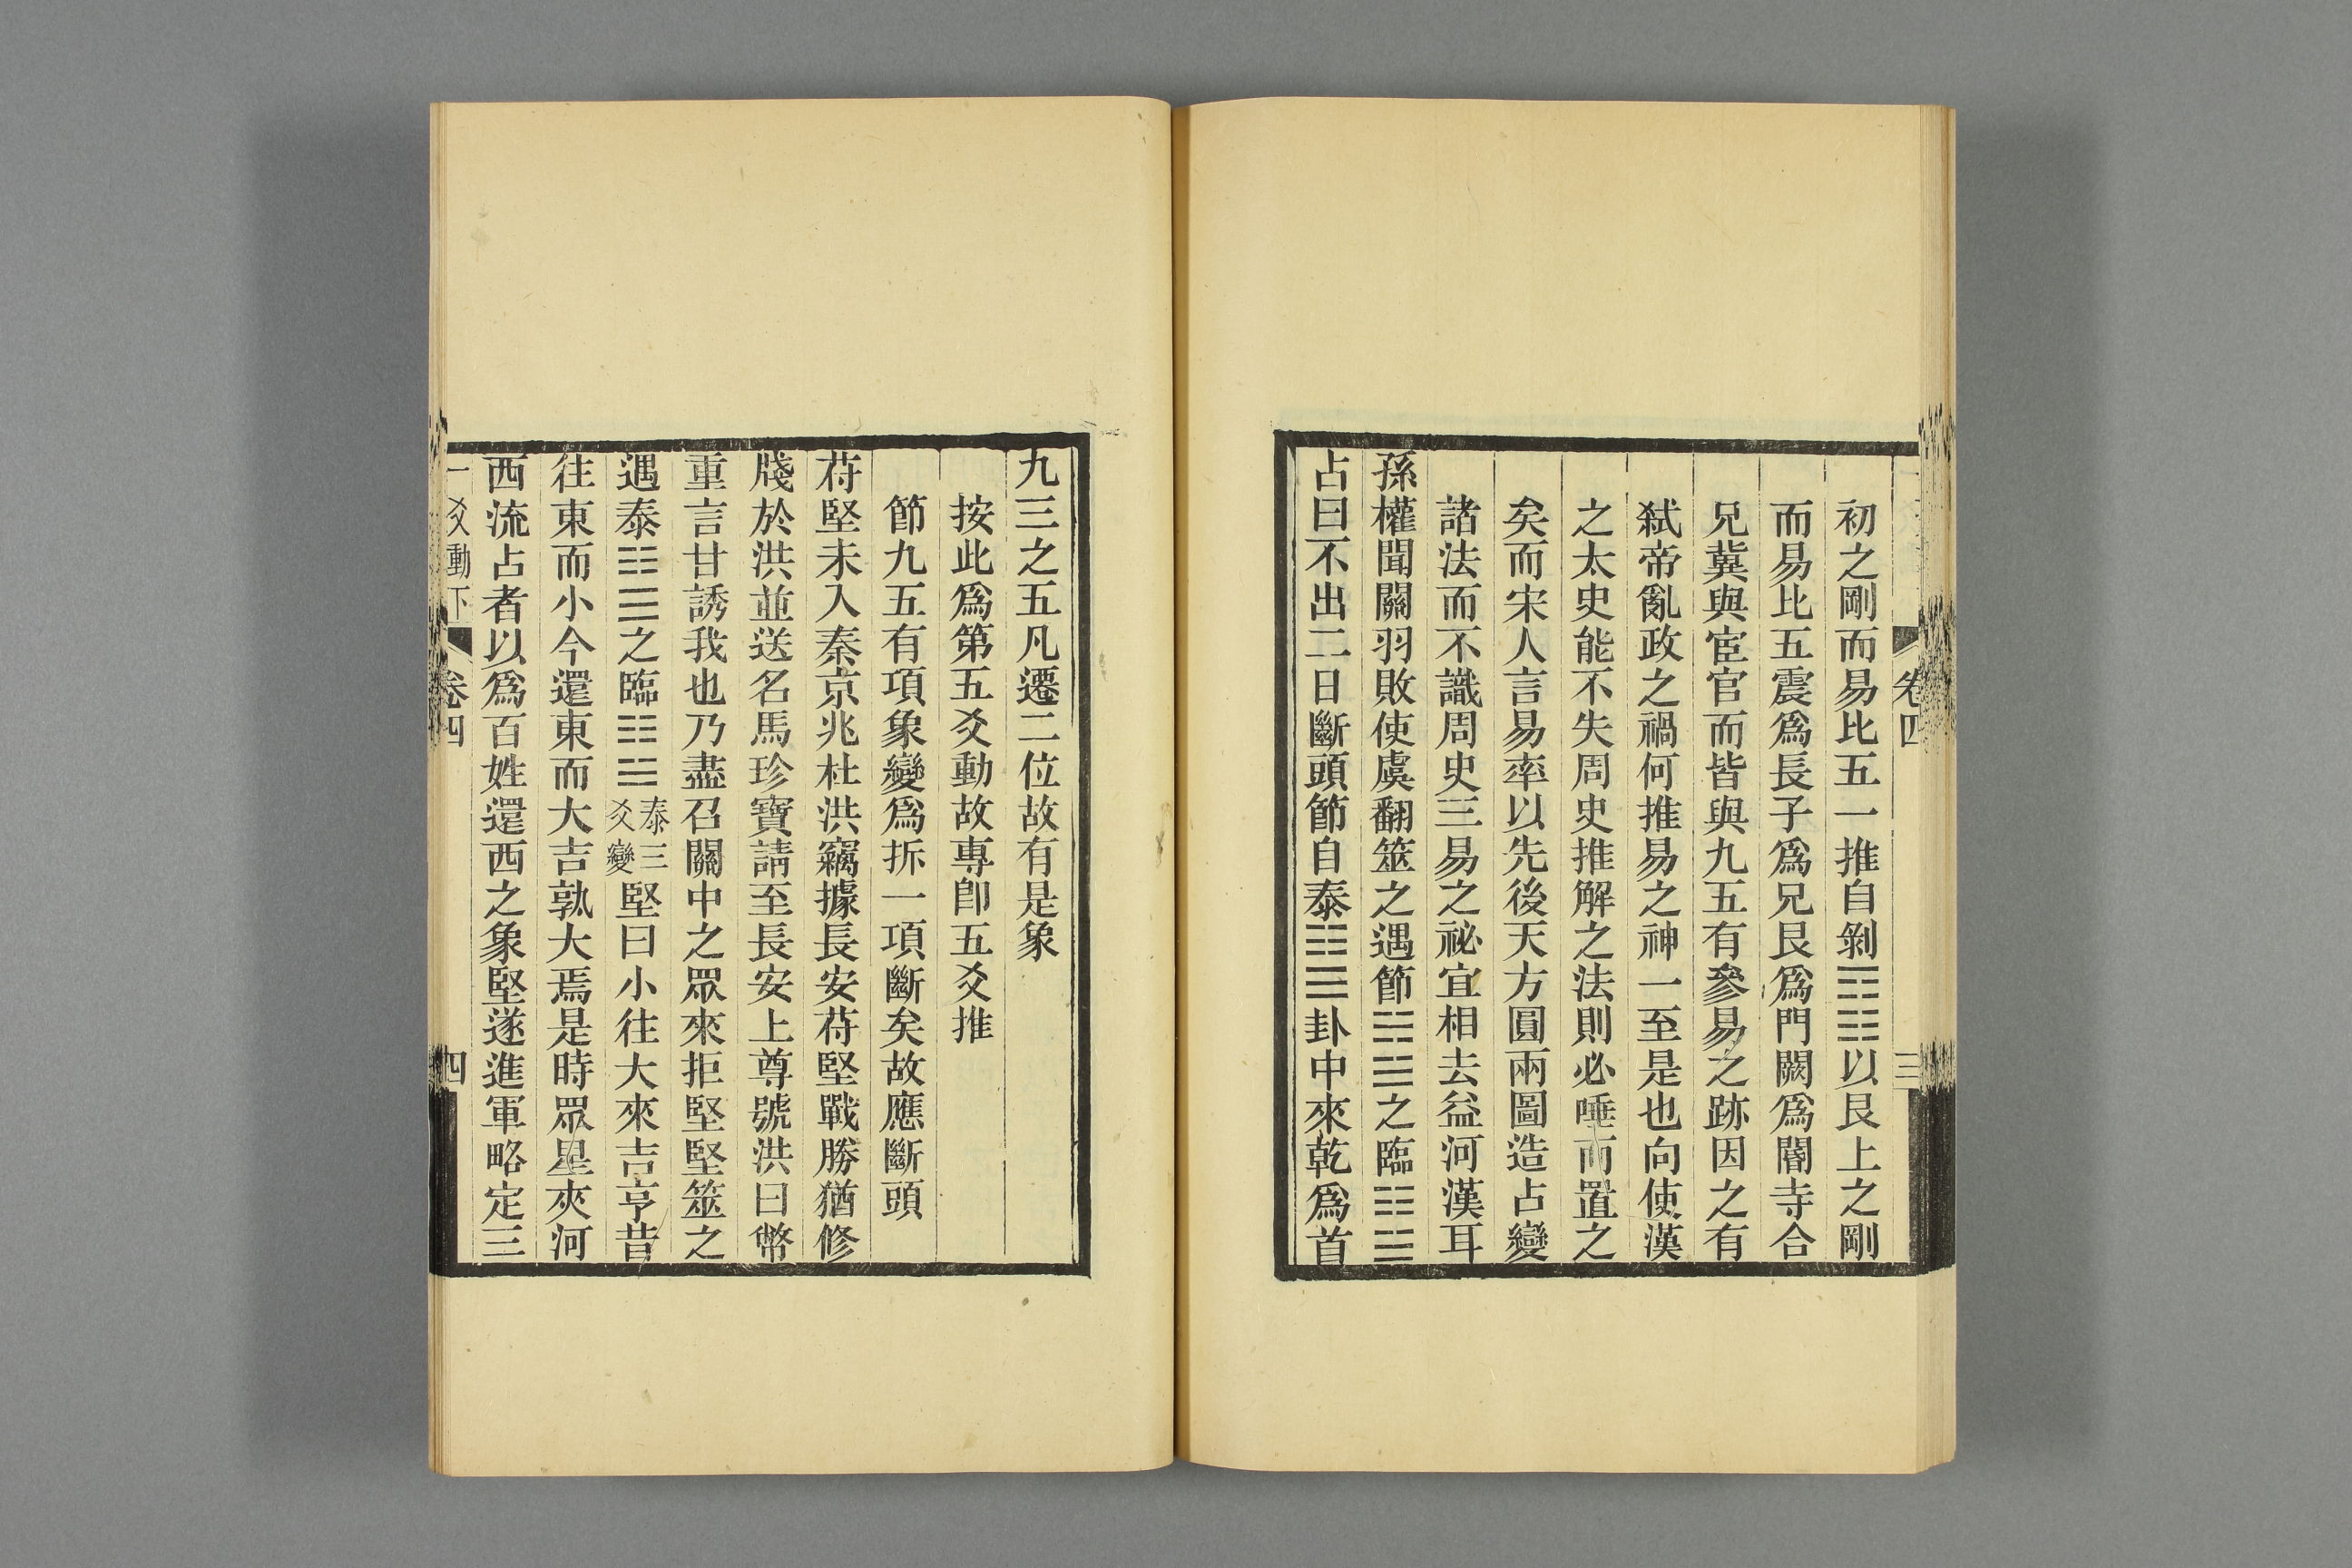 初之剛而易比五一推自剝☶☷以艮上之剛
而易比五震爲長子爲兄艮爲門闕爲閽寺合
兄冀與宦官而皆與九五有參易之跡因之有
弑帝亂政之禍何推易之神一至是也向使漢
之太史能不失周史推解之法則必唾而置之
矣而宋人言易率以先後天方圓兩圖造占變
諸法而不識周史三易之祕宜相去益河漢耳
孫權聞關羽敗使虞翻筮之遇節☵☱之臨☷☱
占曰不出二日斷頭節自泰☷☰卦中來乾爲首
卷四
三
九三之五凡遷二位故有是象
按此爲第五爻動故專卽五爻推
節九五有項象變爲拆一項斷矣故應斷頭
苻堅未入秦京兆杜洪竊據長安苻堅戰勝猶修
牋於洪並送名馬珍寶請至長安上尊號洪曰幣
重言甘誘我也乃盡召關中之眾來拒堅堅筮之
遇泰☷☰之臨☷☱泰三爻變堅曰小往大來吉亨昔
往東而小今還東而大吉孰大焉是時眾星夾河
西流占者以爲百姓還西之象堅遂進軍略定三
一爻動下
卷四
四